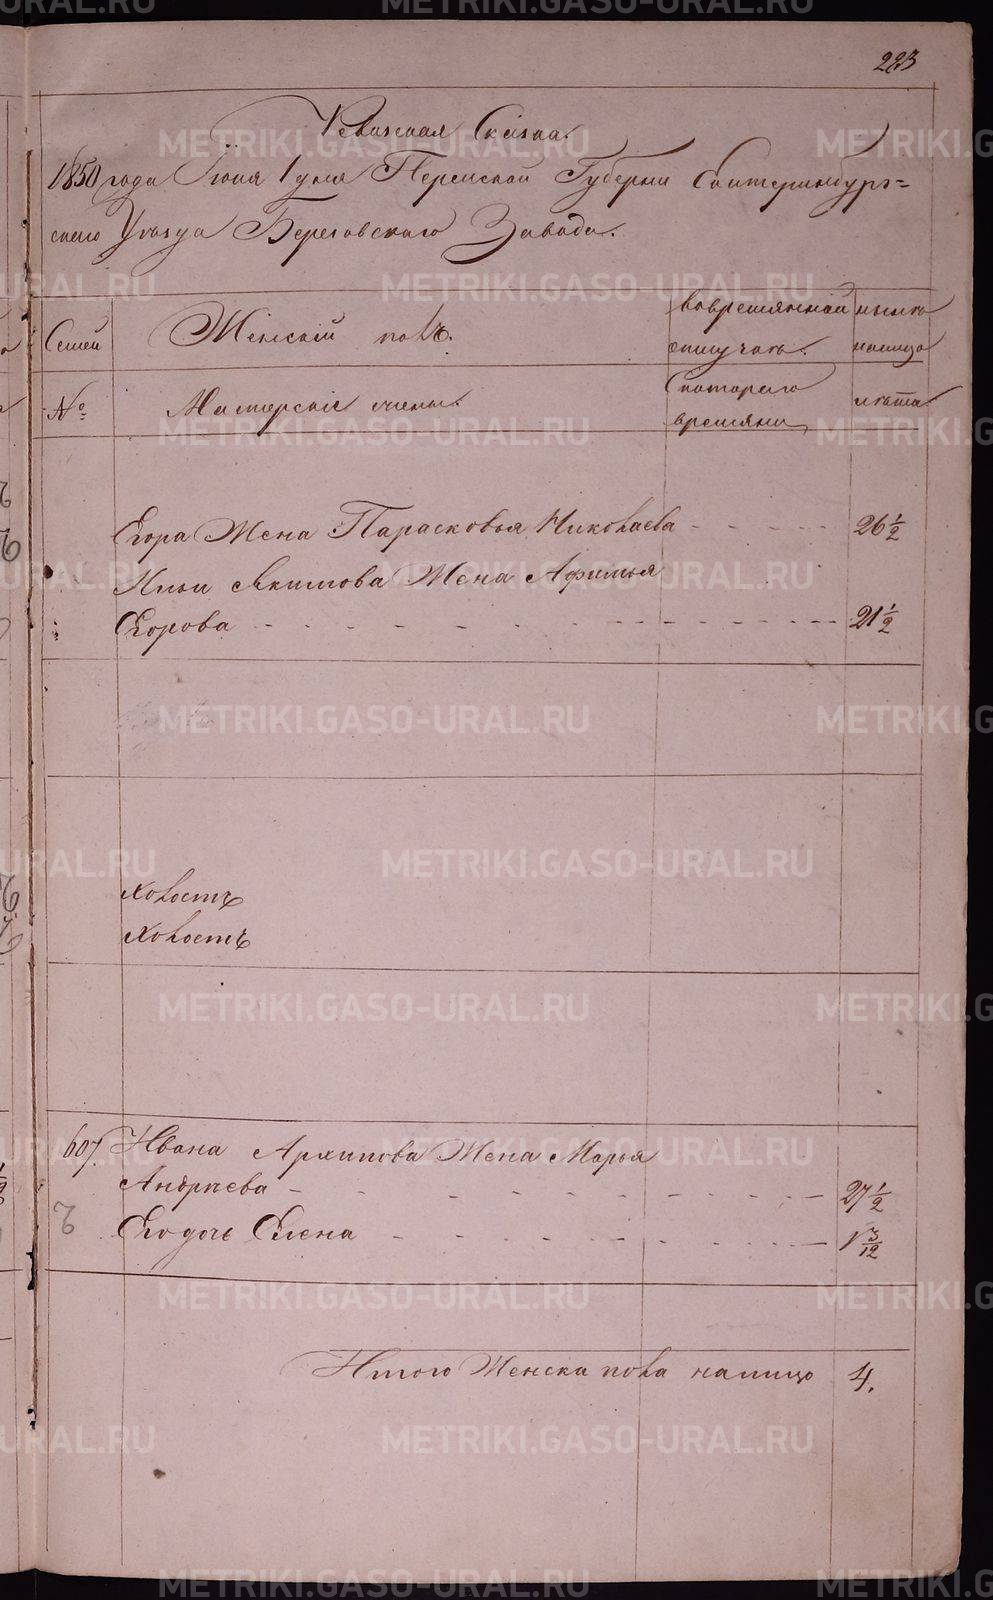 223
Ревизская Сказка.
1850 года Июня 1 дня Пермской Губернии Екатеринбург=
скаго Уезда Березовскаго Завода.
Семей
Женский полъ.
во временной
отлучке.
ныне
налицо
№
Мастерские члены.
С котораго
времяни
лета
Егора Жена Парасковья Николаева - - - - 26 1/2
Ильи Якимова Жена Афимья
Егорова - - - - - - - - - - 21 1/2
Холостъ
Холостъ
607. Ивана Архипова Жена Марья
Андреева - - - - - - - - 27 1/2
Его дочь Елена - - - - - - - 1 3/12
Итого Женска пола налицо 4.
METRIKI.GASO-URAL.RU